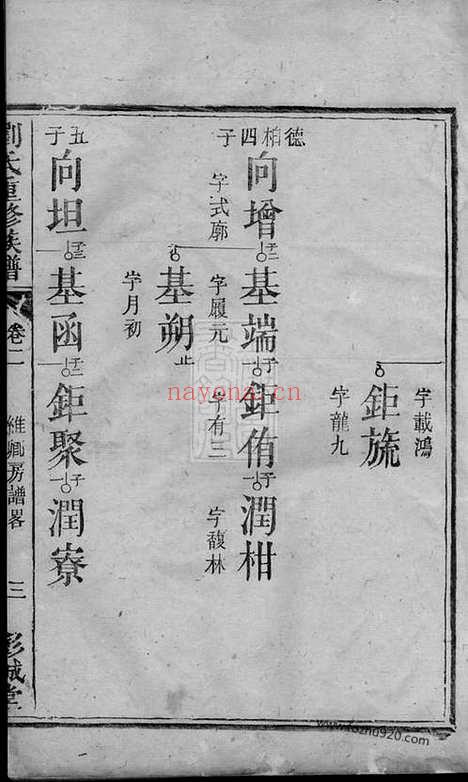 字載鴻
鉅旒
字龍九
德柏四子
向增 子二 基端 子一 鉅侑 子一 潤柑
字式廓
字履元
字有三
字馥林
基朔 止
字月初
五子
向坦 子二 基函 子二 鉅聚 子一 潤寮
劉氏重修族譜
卷二
維卿房譜畧
三
彭城堂
nayona.cn
www.fozhu920.com